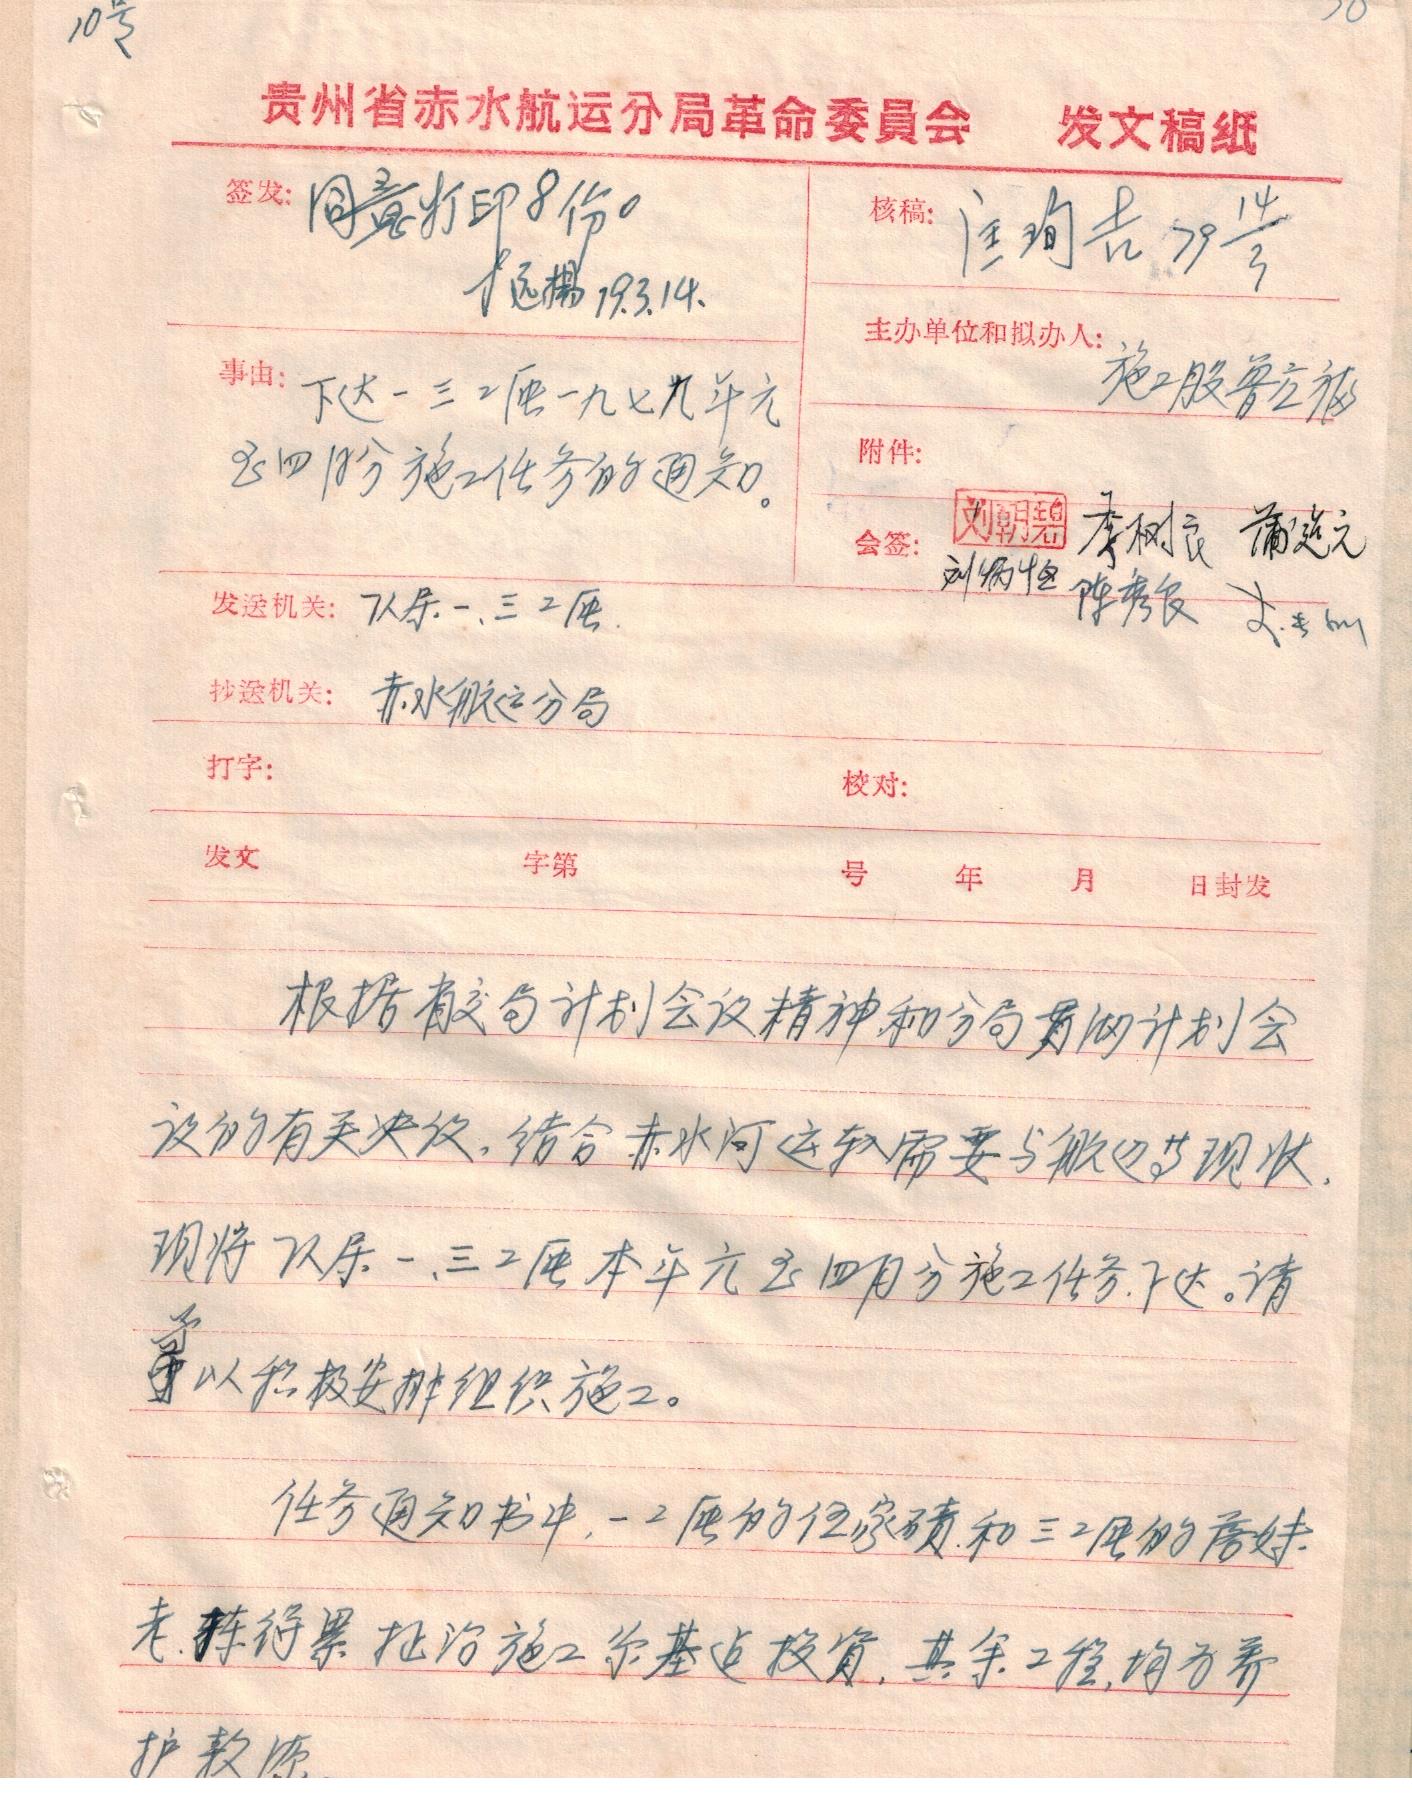 10号
贵州省赤水航运分局革命委員会 发文稿纸
签发: 同意打印8份。
远揚 79.3.14.
核稿: 匡珣吉 79 14/3
主办单位和拟办人:
施工股曾立福
事由: 下达一三工区一九七九年元
至四月分施工任务的通知。
附件:
会签: 刘朝碧 李树良 蒲廷元
刘炳恒 陈彦良
发送机关: 队属一、三工区.
抄送机关: 赤水航运分局
打字: 校对:
发文 字第 号 年 月 日封发
根据省交局计划会议精神和分局贯彻计划会
议的有关决议,结合赤水河运输需要与航道现状,
现将队属一、三工区本年元至四月分施工任务下达。请
予以积极安排组织施工。
任务通知书中,一工区的任家碛和三工区的
老 整治施工分基建投资,其余工程,均为养
护款源.